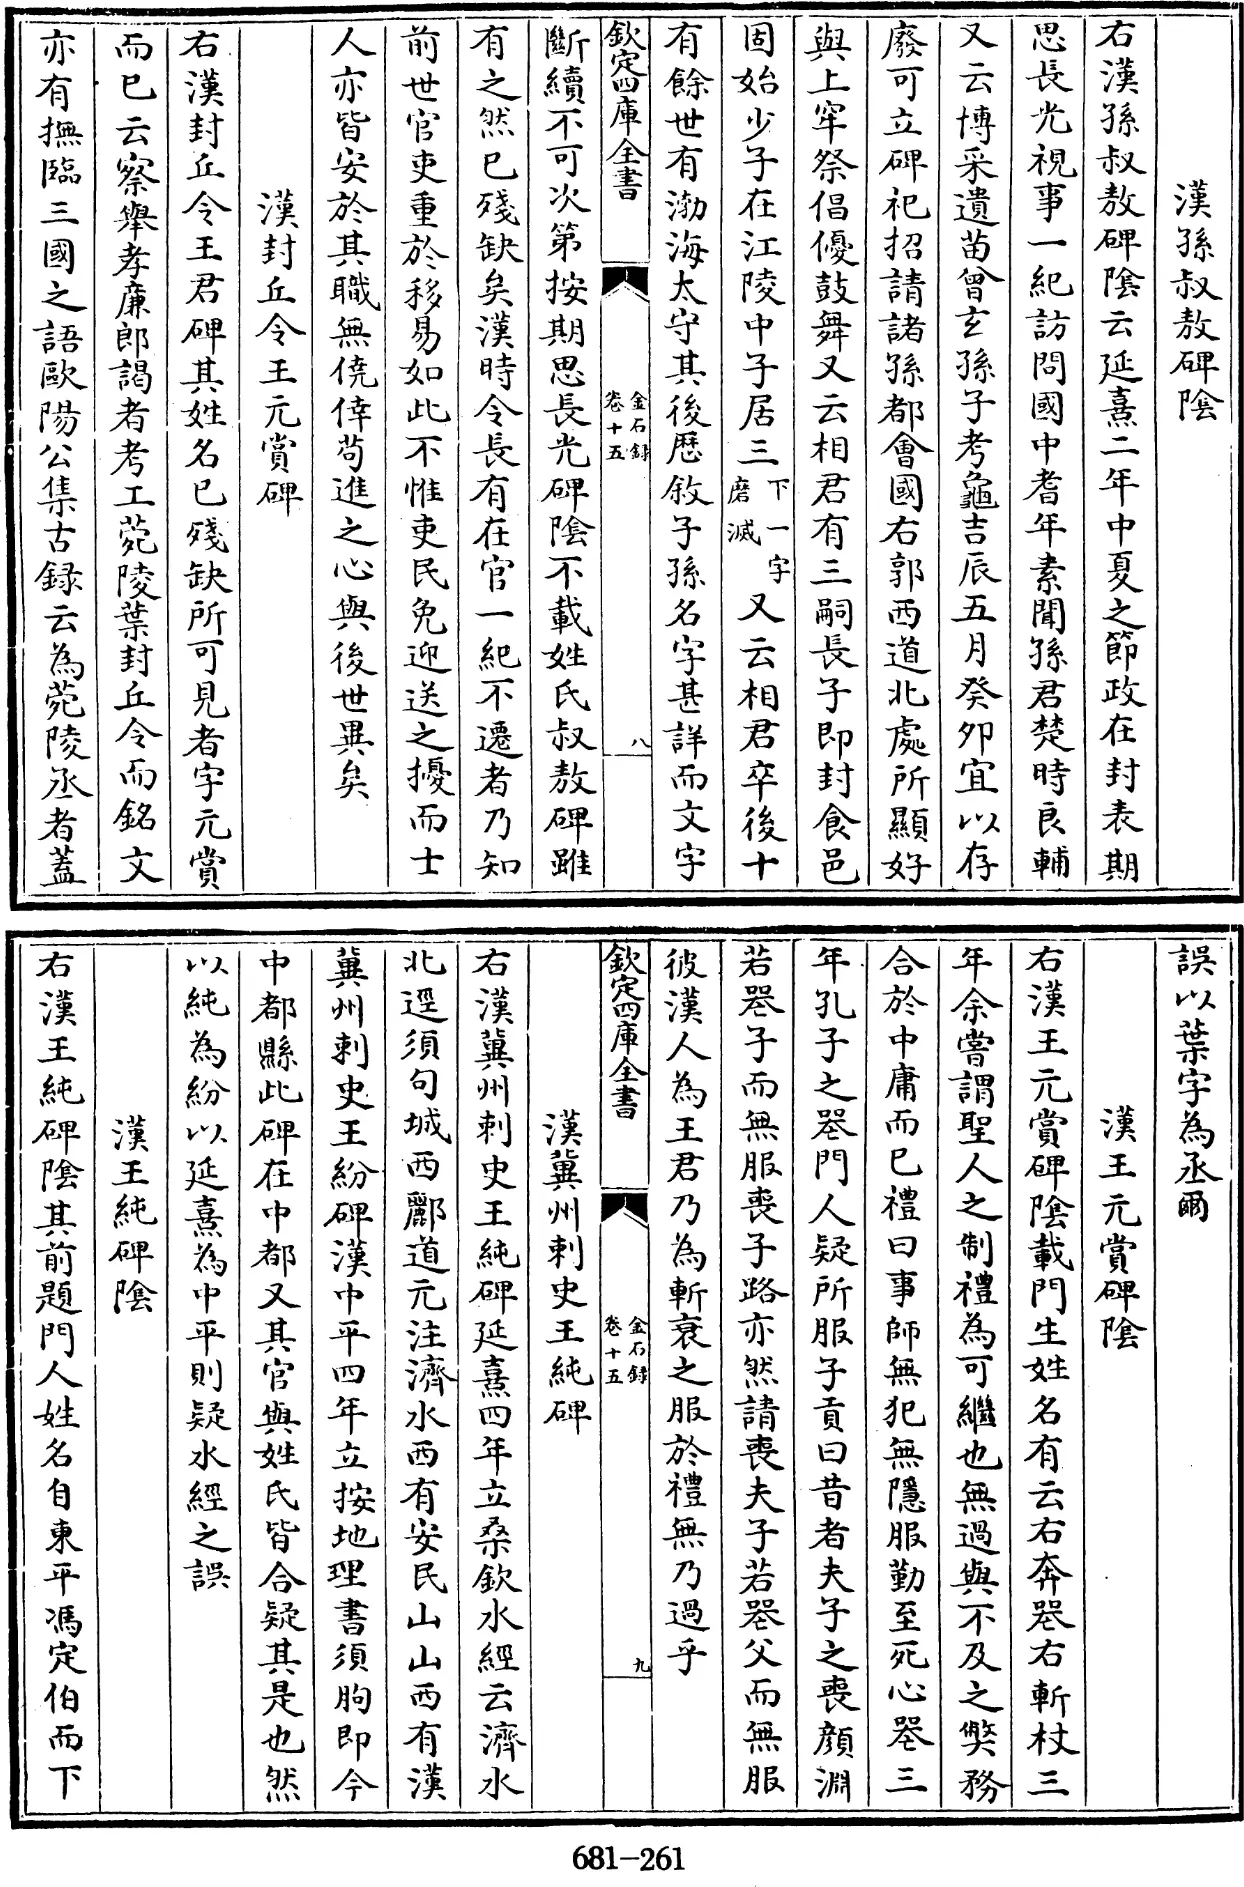 漢孫叔敖碑隂
右漢孫叔敖碑隂云延熹二年中夏之節政在封表期
思長光視事一紀訪問國中耆年素聞孫君楚時良輔
又云博采遺苗曾玄孫子考龜吉辰五月癸夘宜以存
廢可立碑祀招請諸孫都會國右郭西道北處所顯好
與上牢祭倡優鼓舞又云相君有三嗣長子即封食邑
固始少子在江陵中子居三下一字磨滅又云相君卒後十
有餘世有渤海太守其後歴敘子孫名字甚詳而文字
欽定四庫全書 金石録卷十五 八
斷續不可次第按期思長光碑隂不載姓氏叔敖碑雖
有之然已殘缺矣漢時令長有在官一紀不遷者乃知
前世官吏重於移易如此不惟吏民免迎送之擾而士
人亦皆安於其職無僥倖苟進之心與後世異矣
漢封丘令王元賞碑
右漢封丘令王君碑其姓名已殘缺所可見者字元賞
而已云察舉孝廉郎謁者考工菀陵葉封丘令而銘文
亦有撫臨三國之語歐陽公集古録云為菀陵丞者蓋
誤以葉字為丞爾
漢王元賞碑隂
右漢王元賞碑隂載門生姓名有云右奔喪右斬杖三
年余嘗謂聖人之制禮為可繼也無過與不及之弊務
合於中庸而已禮曰事師無犯無隱服勤至死心喪三
年孔子之喪門人疑所服子貢曰昔者夫子之喪顔淵
若喪子而無服喪子路亦然請喪夫子若喪父而無服
彼漢人為王君乃為斬衰之服於禮無乃過乎
欽定四庫全書 金石録卷十五 九
漢冀州刺史王純碑
右漢冀州刺史王純碑延熹四年立桑欽水經云濟水
北逕須句城西酈道元注濟水西有安民山山西有漢
冀州刺史王紛碑漢中平四年立按地理書須朐即今
中都縣此碑在中都又其官與姓氏皆合疑其是也然
以純為紛以延熹為中平則疑水經之誤
漢王純碑隂
右漢王純碑隂其前題門人姓名自東平馮定伯而下
681-261